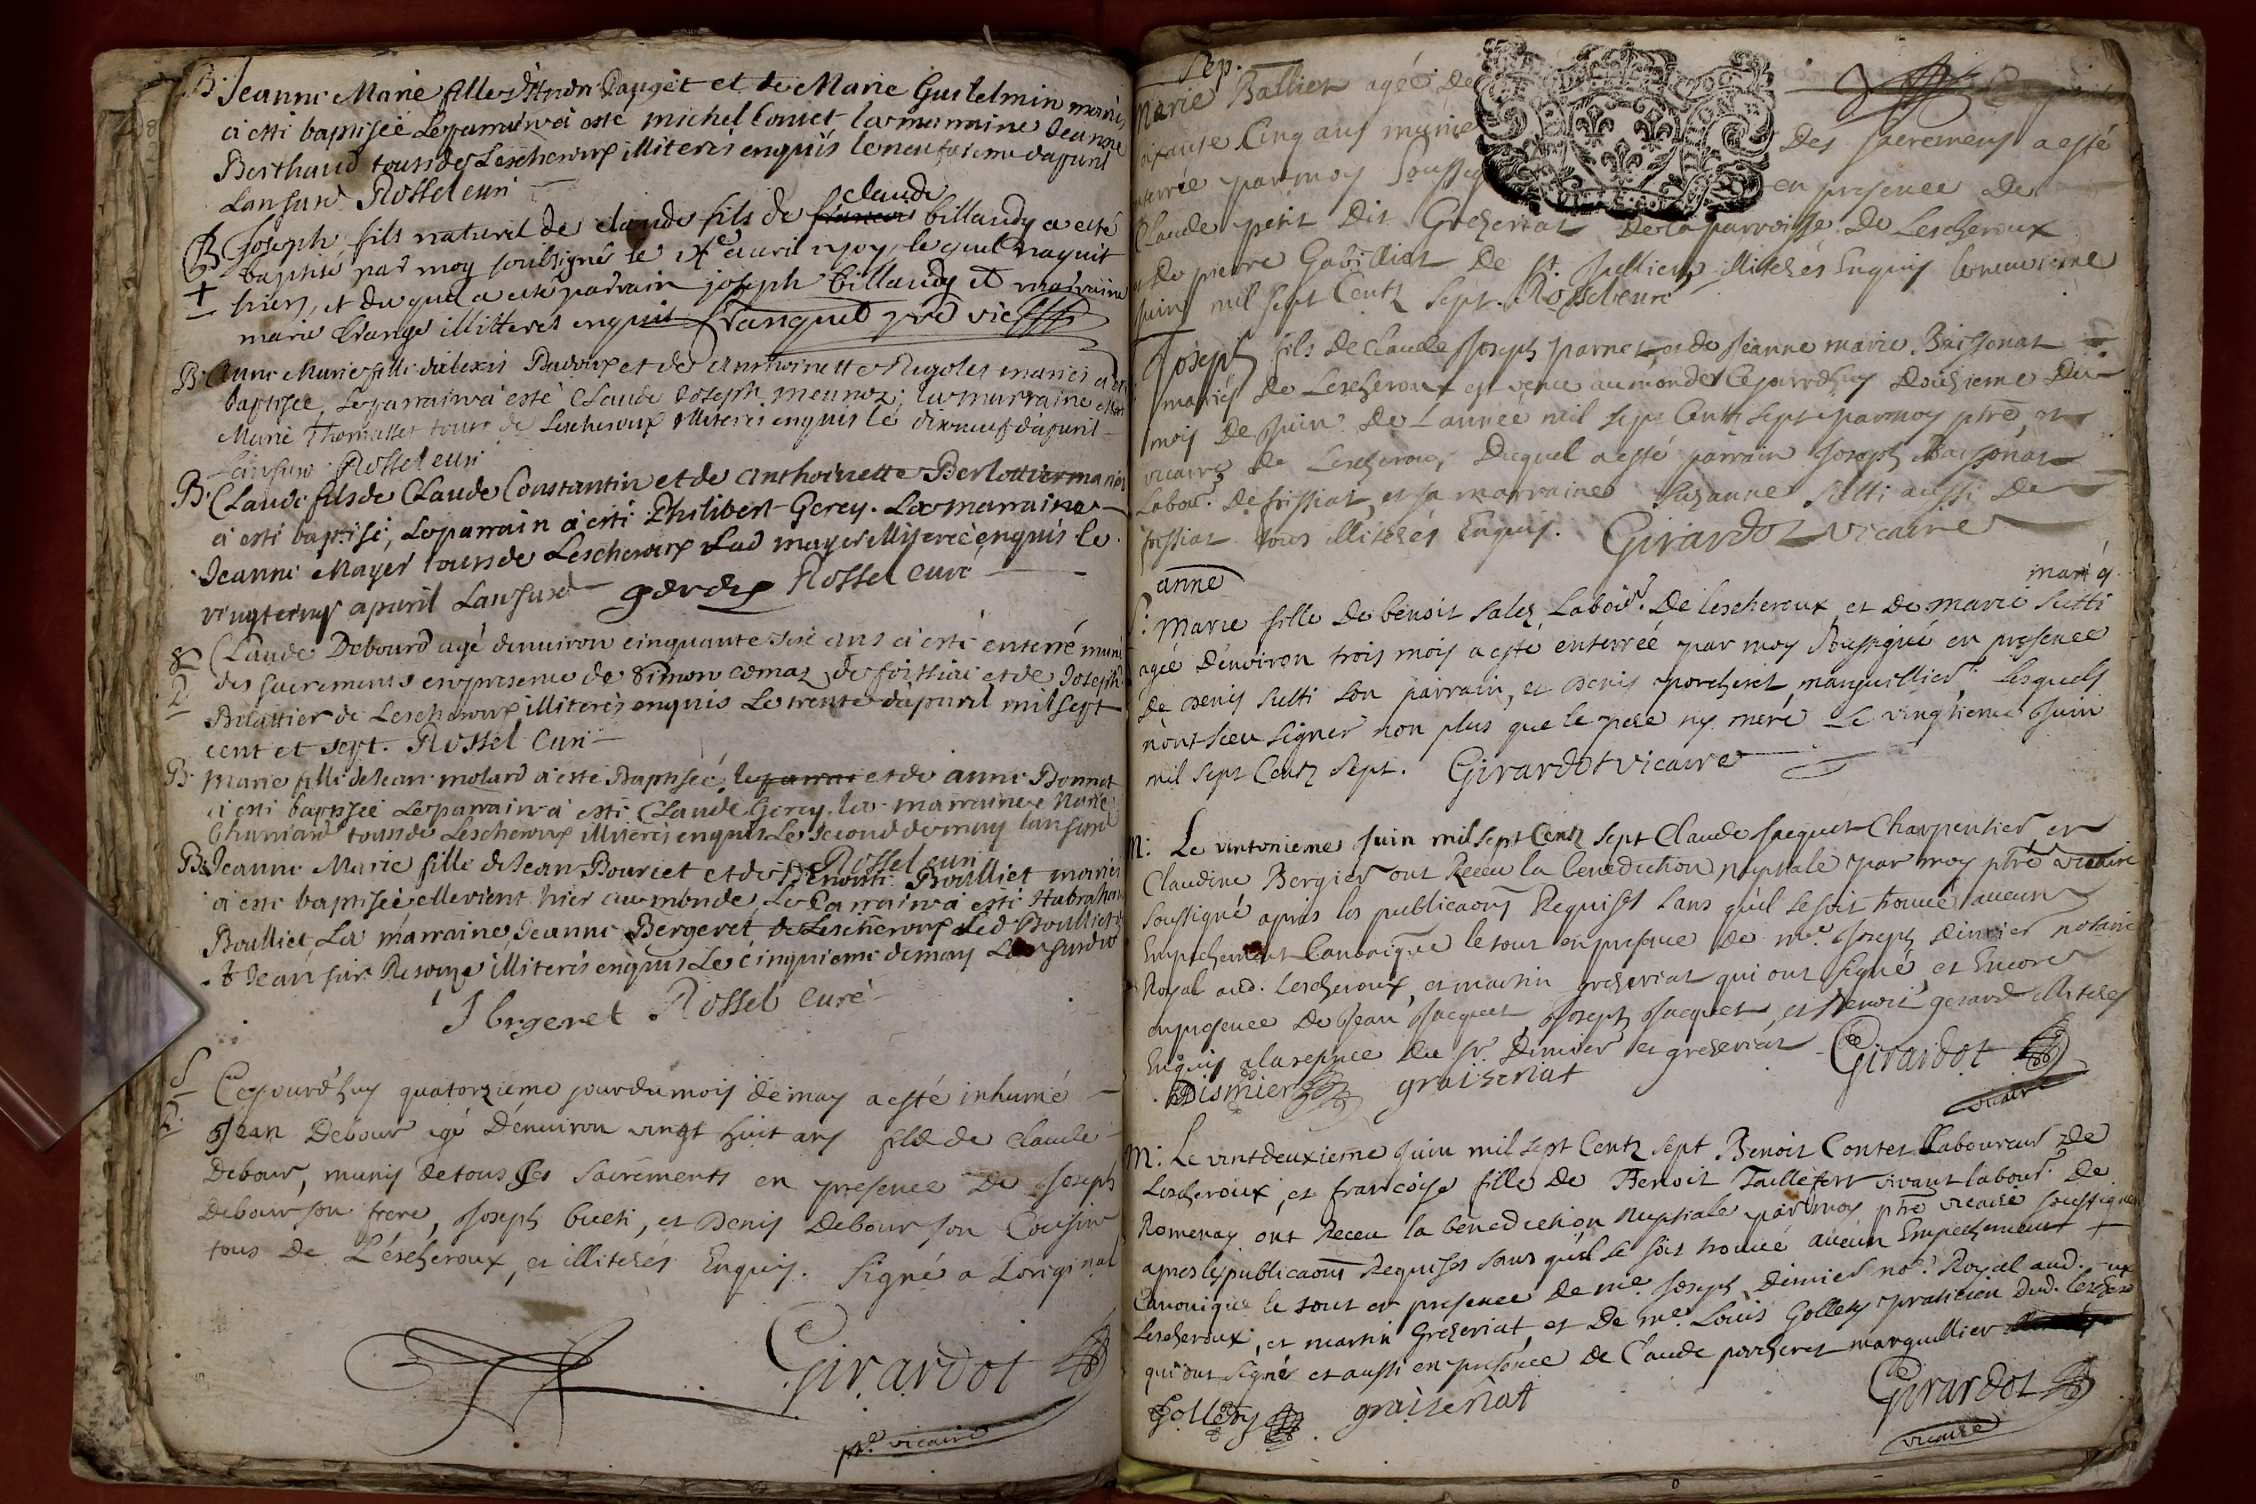 B. Jeanne Marie fille d'Andre et de Marie Guilelmin mariés
a esté baptiseé Le parrain a esté michel Comet la marraine Jeanne
Berthaud tous de Lescheroux illiterés enquis le neufvieme d'apuril
L'an susd. Rossel curé
claude
B Joseph fils naturel de claude fils de francois billaudy a esté
baptisé par moy soubsigné le avril 1707 lequel naquit
hier, et duquel a esté parrain joseph billaudy et marraine
marie illitterés enquis franquet vic
B. Anne Marie fille d'alexis Badoux et de Anthoinette Rigolet mariés a esté
baptisée, Le parrain a esté Claude Joseph meunoz, la marraine
Marie Thomasset tous de Lescheroux illiterés enquis le dixneuf d'apuril
L'an susd. Rossel curé
B. Claude fils de Claude Constantin et de Anthoinette Berlottier mariés
a esté baptisé, Le parrain a esté Philibert Gerey. La marraine
Jeanne Mayer tous de Lescheroux Lad mayer illiteréé enquis le
vingt apuril L'an susd. gerey Rossel curé
S Claude Debourd agé d'environ cinquante six ans a esté enterré muni
2 des sacrements en presence de Simon comaz de foissiat et de Joseph
Billattier de Lescheroux illiterés enquis Le trente d'apuril mil sept
cent et sept. Rossel Curé
B. Marie fille de Jean molard a esté Baptiseé, le parrai et de anne Bonnet
a esté baptiseé Le parrain a esté Claude Gerey, la marraine Marie
tous de Lescheroux illiterés enquis Le second de may l'an susd
Rossel curé
B. Jeanne Marie fille de Jean Bouriet et de Benoite Boulliet mariés
a esté baptiseé elle vient hier au monde, Le Parrain a esté Habraham
Boulliet, La marraine, Jeanne Bergeret de Lescheroux Led Boulliet
de Jean sur Resouze illiterés enquis Le cinquieme de may L'an susdit
J brgeret Rossel curé
S
2. Ce jourd'huy quatorzieme jour du mois de may a esté inhumé
Jean Debour agé d'environ vingt huit ans fils de claude
Debour, munis de tous ses sacrements en presence de Joseph
Debour son frere, Joseph bueti, et Denis Debour son Cousin
tous de L'escheroux, et illiterés Enquis. Signé a L'original
Girardot
p.re vicaire
Sep.
Marie Ballier agéé de
soixante Cinq ans munie Des sacremens a esté
enterrée par moy Soussigné en presence de
Claude petit dit Grezeriat De la parroisse de Lescheroux
et De pierre Gabilliet De St. Jullien, illiterés Enquis le neuvieme
juin mil sept Centz sept. Rossel curé
Joseph fils de Claude Joseph parnet et de Jeanne marie Baissonat
mariés de Lescheroux est venu au monde Cejourd'huy Douzieme du
mois de Juin De L'année mil sept Centz sept par moy ptre, et
vicaire de Lescheroux, Duquel a esté parrain Joseph Baissonat
Labour. de foissiat, et sa marraine Suzanne Sulti aussi de
foissiat tous illiterés Enquis. Girardot vicaire
anne mariés
S. Marie fille de benoit Salez Labour. De lescheroux et de marie Sutti
agéé d'environ trois mois a esté enterréé par moy Soussigné en presence
de Denis Sulti son parrain, et Denis porcheret, marguillier, Lesquels
n'ont sceu signer non plus que le pere ny mere Le vingtieme Juin
mil sept Centz sept. Girardot vicaire
M: Le vintunieme Juin mil sept Centz sept Claude Jacquet Charpentier et
Claudine Bergier ont Receu la benediction nuptiale par moy ptre vicaire
soussigné apres les publicaons Requises sans qu'il se soit trouvé aucun
Empechement Canonique le tout en presence de me. Joseph Dimier notaire
Royal aud. Lescheroux, et martin grezeriat qui ont signé, et Encore
en presence de Jean Jacquet Joseph Jacquet et Benoit gerard illiterés
Enquis a la reserve du sr. Dimier et grezeriat
Dismier graiseriat Girardot
vicaire
M: Le vintdeuxieme Juin mil sept Centz sept Benoit Contet Laboureur de
Lescheroux, et francoise fille de Benoit Taillefert vivant labour. de
Romenay ont Receu la benediction nuptiale par moy ptre vicaire soussigné
apres les publicaons Requises sans qu'il se soit trouvé aucun Empechement
Canonique le tout en presence de me. Joseph Dimier no.re Royal aud.
Lescheroux, et martin Grezeriat, et De me. Louis Golley praticien Dud. lescheroux
qui ont signés et aussi en presence de Claude porcheret marguillier
Golley graiseriat Girardot
vicaire